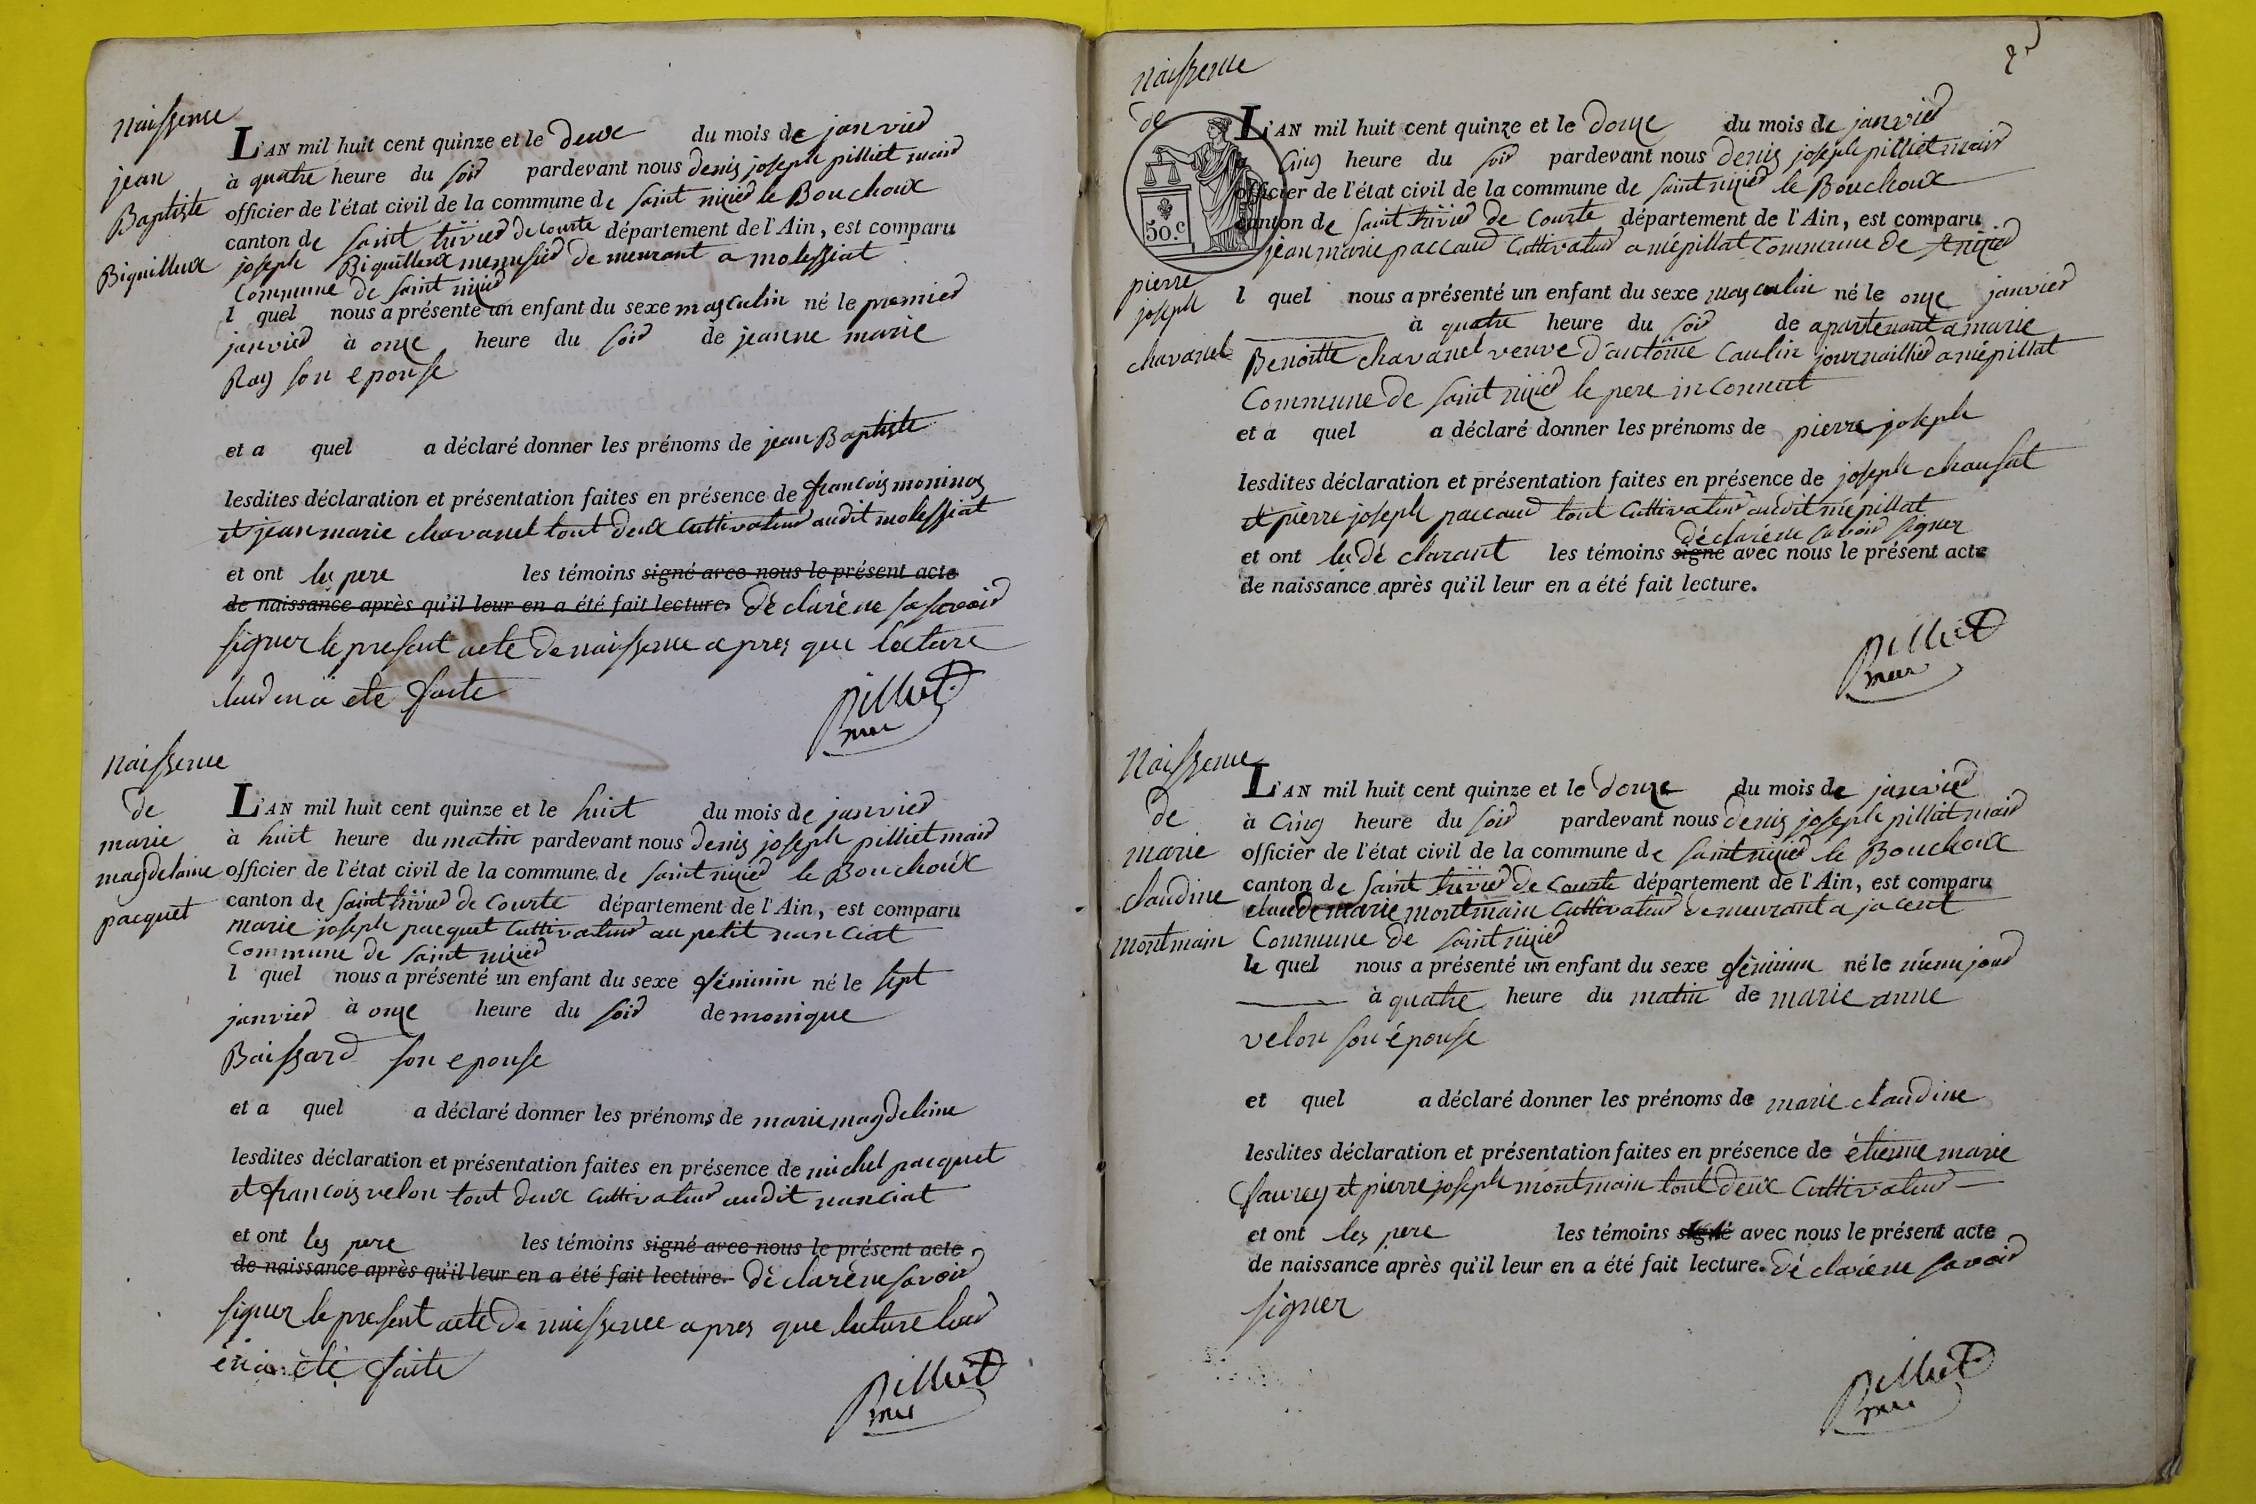 naissence
jean
Baptiste
Biquilleux
L'AN mil huit cent quinze et le deux du mois de janvier
à quatre heure du soir pardevant nous denis joseph pilliet mair
officier de l'état civil de la commune de saint nizier le Bouchoux
canton de saint trivier de courte département de l'Ain, est comparu
joseph Biquilleux menusier demeurant a molessiat
commune de saint nizier
l quel nous a présenté un enfant du sexe masculin né le premier
janvier à onze heure du soir de jeanne marie
Ray son epouse
et a quel a déclaré donner les prénoms de jean Baptiste
lesdites déclaration et présentation faites en présence de francois moninos
et jean marie chavanel tout deux cultivateur audit molessiat
et ont les pere les témoins signé avec nous le présent acte
de naissance après qu'il leur en a été fait lecture. déclaré ne sa savoir
signer le present acte de naissence apres que lecture
leur en a ete faite
Pilliet
mair
naissence
de
marie
magdelaine
pacquet
L'AN mil huit cent quinze et le huit du mois de janvier
à huit heure du matin pardevant nous denis joseph pilliet mair
officier de l'état civil de la commune de saint nizier le Bouchoux
canton de saint trivier de courte département de l'Ain, est comparu
marie joseph pacquet cultivateur au petit nanciat
commune de saint nizier
l quel nous a présenté un enfant du sexe féminin né le sept
janvier à onze heure du soir de monique
Baissard son epouse
et a quel a déclaré donner les prénoms de marie magdelaine
lesdites déclaration et présentation faites en présence de michel pacquet
et francois velon tout deux cultivateur audit nanciat
et ont les pere les témoins signé avec nous le présent acte
de naissance après qu'il leur en a été fait lecture. déclaré ne savoir
signer le present acte de naissence apres que lecture leur
en a été faite
Pilliet
mair
naissence
de
pierre
joseph
chavanel
50.c
L'AN mil huit cent quinze et le douze du mois de janvier
a cinq heure du soir pardevant nous denis joseph pilliet mair
officier de l'état civil de la commune de saint nizier le Bouchoux
canton de saint trivier de courte département de l'Ain, est comparu
jean marie paccaud cultivateur a mépillat commune de st nizier
l quel nous a présenté un enfant du sexe masculin né le onze janvier
à quatre heure du soir de apartenant a marie
Benoitte chavanel veuve d'antoine caulin journaillier a mépillat
commune de saint nizier le pere inconnut
et a quel a déclaré donner les prénoms de pierre joseph
lesdites déclaration et présentation faites en présence de joseph chausat
et pierre joseph paccaud tout cultivateur audit mépillat
déclaré ne savoir signer
et ont le déclarant les témoins signé avec nous le présent acte
de naissance après qu'il leur en a été fait lecture.
Pilliet
mair
naissence
de
marie
claudine
montmain
L'AN mil huit cent quinze et le douze du mois de janvier
à cinq heure du soir pardevant nous denis joseph pilliat mair
officier de l'état civil de la commune de saint nizier le Bouchoux
canton de saint trivier de courte département de l'Ain, est comparu
claude marie montmain cultivateur demeurant a jacent
commune de saint nizier
le quel nous a présenté un enfant du sexe féminin né le mème jour
à quatre heure du matin de marie anne
velon son épouse
et quel a déclaré donner les prénoms de marie claudine
lesdites déclaration et présentation faites en présence de étienne marie
faurey et pierre joseph montmain tout deux cultivateur
et ont les pere les témoins signé avec nous le présent acte
de naissance après qu'il leur en a été fait lecture. déclaré ne savoir
signer
Pilliet
mair